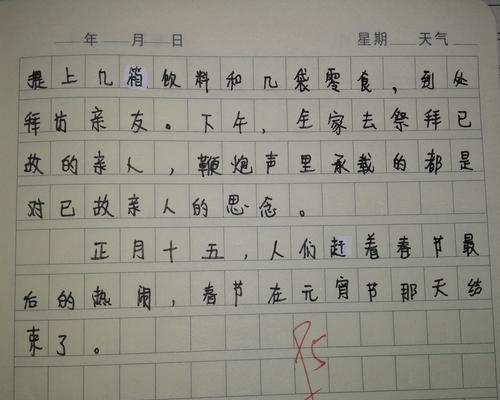 年 月 日 星期 天气
提上几箱饮料和几袋零食，到处
拜访亲友。下午，全家去祭拜已
故的亲人，鞭炮声里承载的都是
对已故亲人的思念。
正月十五，人们赶着春节最
后的热闹，春节在元宵节那天结
束了。
85